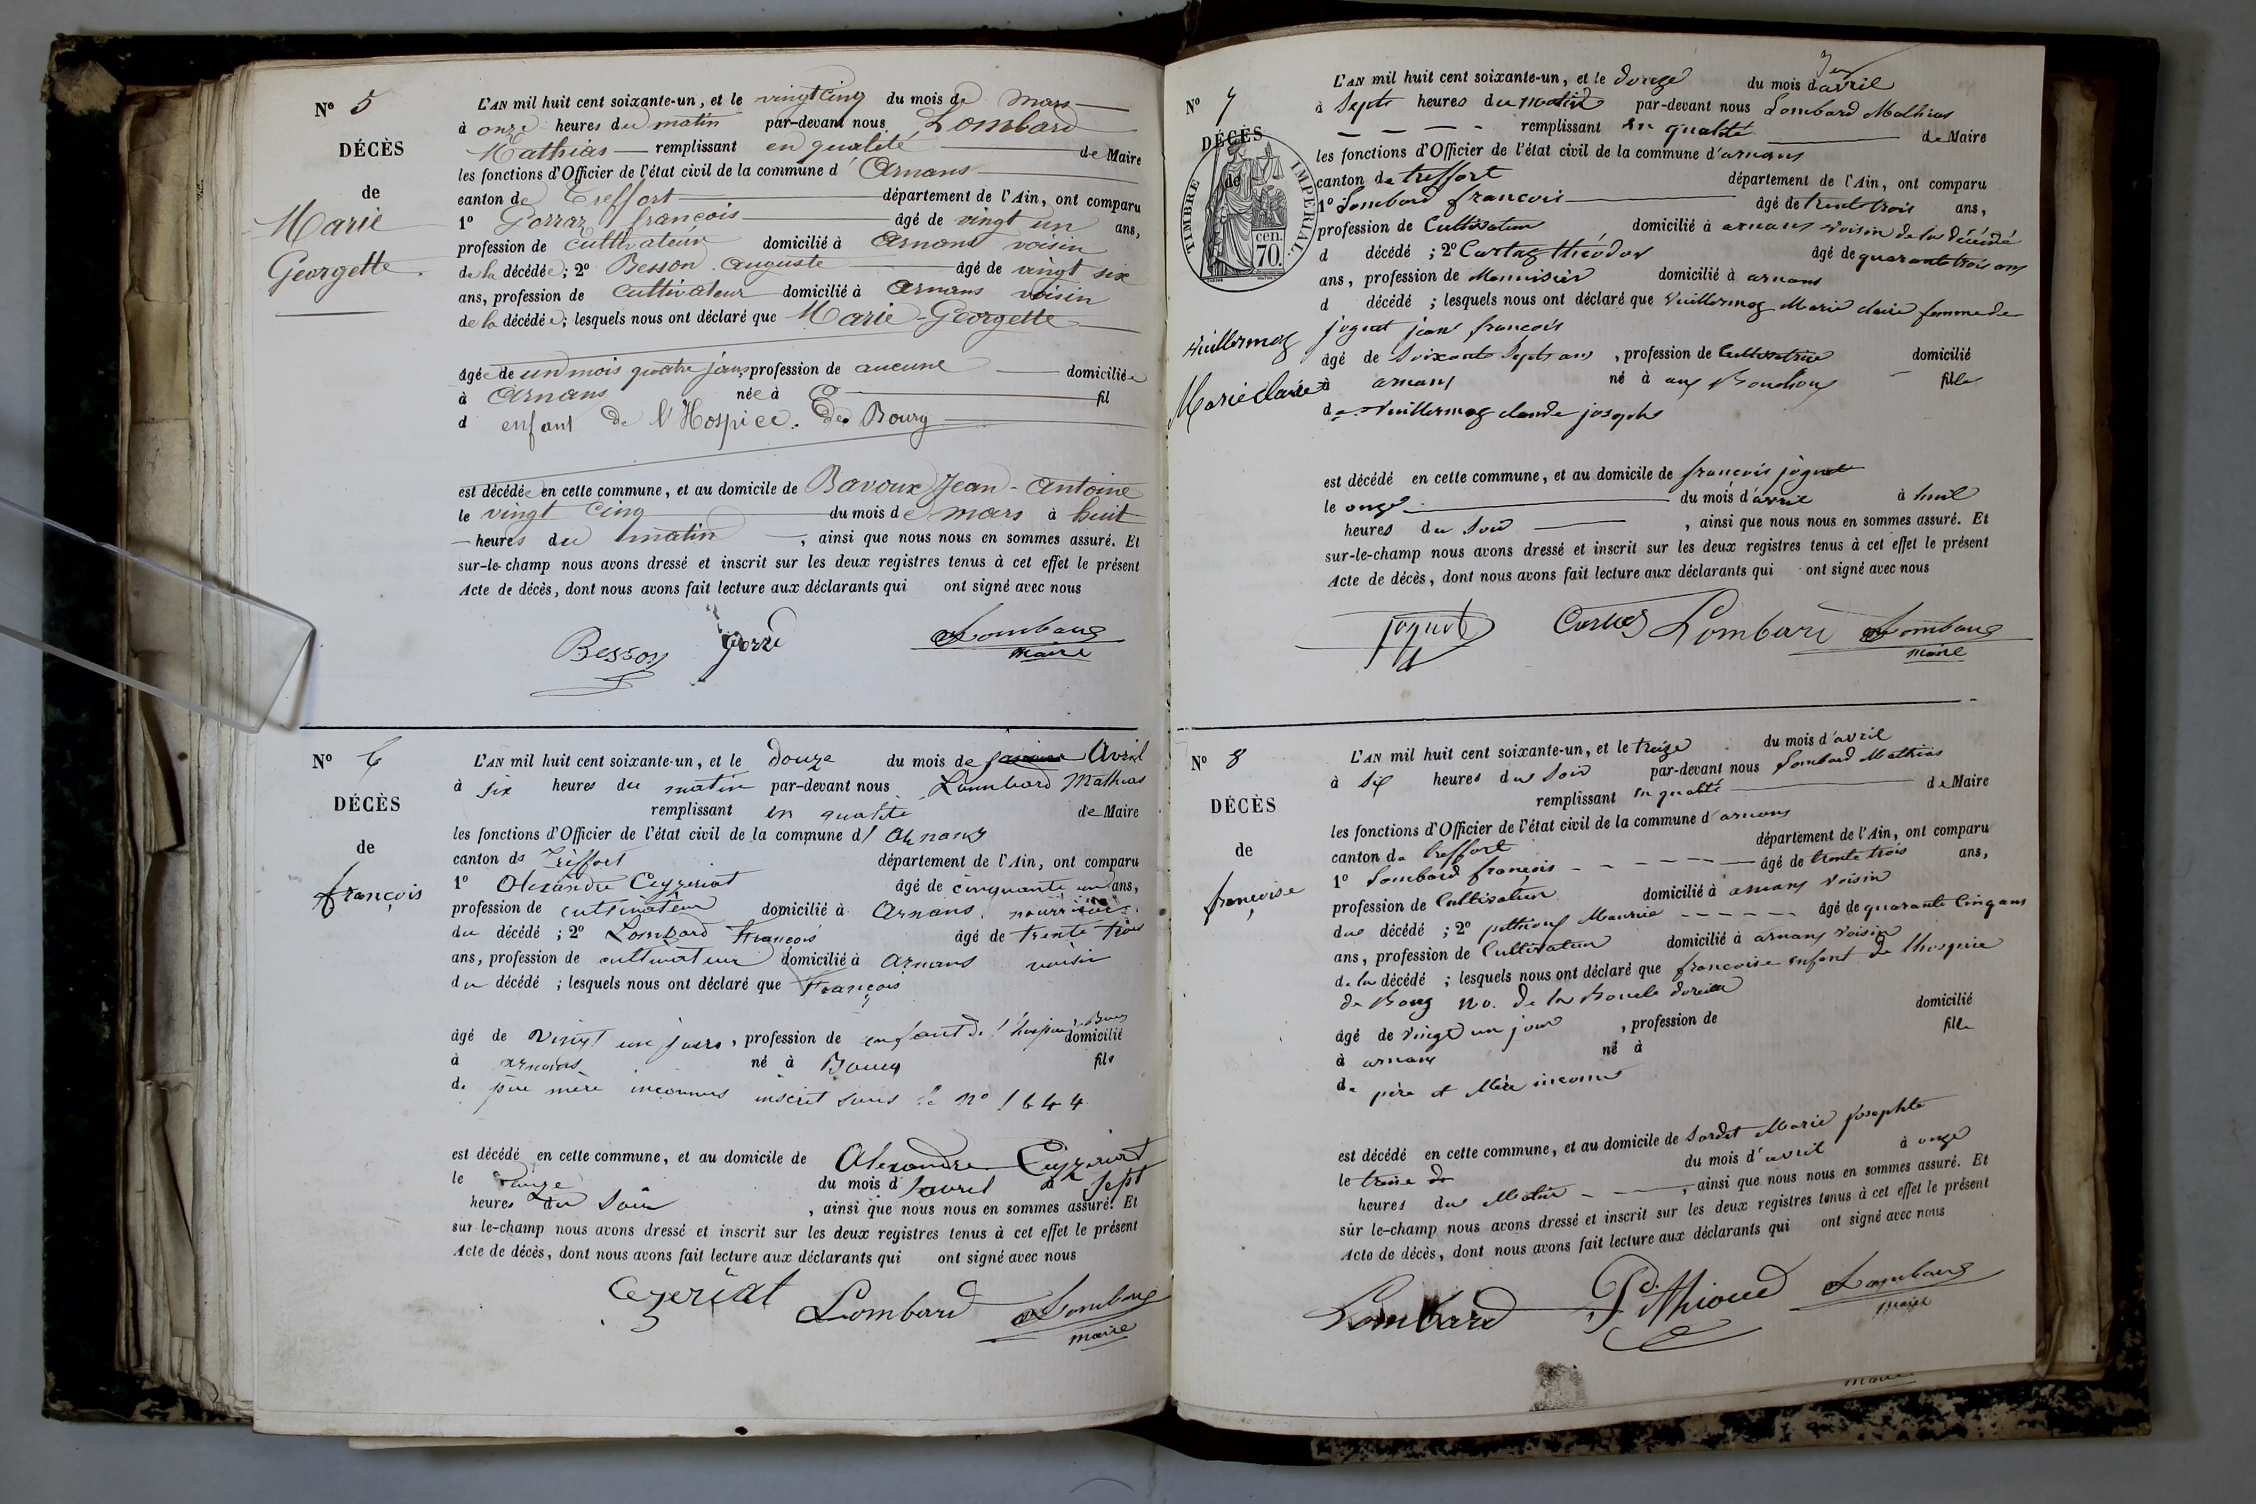 N° 5
DÉCÈS
de
Marie
Georgette
L'AN mil huit cent soixante-un, et le vingt cinq du mois de Mars
à onze heures du matin par-devant nous Lombard
Mathias remplissant en qualité de Maire
les fonctions d'Officier de l'état civil de la commune d'Arnans
canton de Treffort département de l'Ain, ont comparu
1° Gorraz françois âgé de vingt un ans,
profession de cultivateur domicilié à Arnans voisin
de la décédée; 2° Besson Auguste âgé de vingt six
ans, profession de cultivateur domicilié à Arnans voisin
de la décédée; lesquels nous ont déclaré que Marie-Georgette
âgée de un mois quatre jours profession de aucune domiciliée
à Arnans née à fil
d enfant de l'Hospice de Bourg
est décédée en cette commune, et au domicile de Bavoux Jean-Antoine
le vingt cinq du mois de mars à huit
heures du matin, ainsi que nous nous en sommes assuré. Et
sur-le-champ nous avons dressé et inscrit sur les deux registres tenus à cet effet le présent
Acte de décès, dont nous avons fait lecture aux déclarants qui ont signé avec nous
Besson Lombard
maire
N° 6
DÉCÈS
de
françois
L'AN mil huit cent soixante-un, et le douze du mois de Avril
à six heures du matin par-devant nous Lombard Mathias
remplissant en qualité de Maire
les fonctions d'Officier de l'état civil de la commune d'Arnans
canton de Treffort département de l'Ain, ont comparu
1° Alexandre Ceyzeriat âgé de cinquante un ans,
profession de cultivateur domicilié à Arnans nourricier
du décédé; 2° Lombard François âgé de trente trois
ans, profession de cultivateur domicilié à Arnans voisin
du décédé; lesquels nous ont déclaré que François
âgé de vingt un jours, profession de enfant de l'hospice de Bourg domicilié
à arnans né à Bourg fils
de père mère inconnus inscrit sous le n° 1644
est décédé en cette commune, et au domicile de Alexandre Ceyzeriat
le du mois d'avril à sept
heures du soir, ainsi que nous nous en sommes assuré. Et
sur le-champ nous avons dressé et inscrit sur les deux registres tenus à cet effet le présent
Acte de décès, dont nous avons fait lecture aux déclarants qui ont signé avec nous
Ceyzeriat Lombard Lombard
maire
N° 7
DÉCÈS
de
TIMBRE IMPÉRIAL
cen.
70.
Vuillermoz
Marie claire
L'AN mil huit cent soixante-un, et le douze du mois d'avril
à Septs heures du matin par-devant nous Lombard Mathias
remplissant en qualité de Maire
les fonctions d'Officier de l'état civil de la commune d'arnans
canton de treffort département de l'Ain, ont comparu
1° Lombard francois âgé de trente trois ans,
profession de Cultivateur domicilié à arnans voisin de la décédé
d décédé; 2° Cartaz théodor âgé de quarante trois ans
ans, profession de Menuisier domicilié à arnans
d décédé; lesquels nous ont déclaré que Vuillermoz Marie claire femme de
joguet jean francois
âgé de Soixante Septs ans, profession de Cultivatrice domicilié
à arnans né à aux Bouchoux fille
de Vuillermoz claude josephs
est décédé en cette commune, et au domicile de francois joguet
le onze du mois d'avril à huit
heures du Soir, ainsi que nous nous en sommes assuré. Et
sur-le-champ nous avons dressé et inscrit sur les deux registres tenus à cet effet le présent
Acte de décès, dont nous avons fait lecture aux déclarants qui ont signé avec nous
joguet Lombard Lombard
maire
N° 8
DÉCÈS
de
françoise
L'AN mil huit cent soixante-un, et le treize du mois d'avril
à six heures du Soir par-devant nous Lombard Mathias
remplissant en qualité de Maire
les fonctions d'Officier de l'état civil de la commune d'arnans
canton de treffort département de l'Ain, ont comparu
1° Lombard françois âgé de trente trois ans,
profession de Cultivateur domicilié à arnans voisin
du décédé; 2° pithioux Maurice âgé de quarante Cinq ans
ans, profession de Cultivateur domicilié à arnans voisin
de la décédé; lesquels nous ont déclaré que francoise enfant de lhospice
de Bourg no. de la Boucle
âgé de vingt un jour, profession de domicilié
à arnans né à fille
de père et Mère inconnu
est décédé en cette commune, et au domicile de Sordet Marie Josephte
le treize du mois d'avril à onze
heures du Matin, ainsi que nous nous en sommes assuré. Et
sur le-champ nous avons dressé et inscrit sur les deux registres tenus à cet effet le présent
Acte de décès, dont nous avons fait lecture aux déclarants qui ont signé avec nous
Lombard Pithioud Lombard
maire